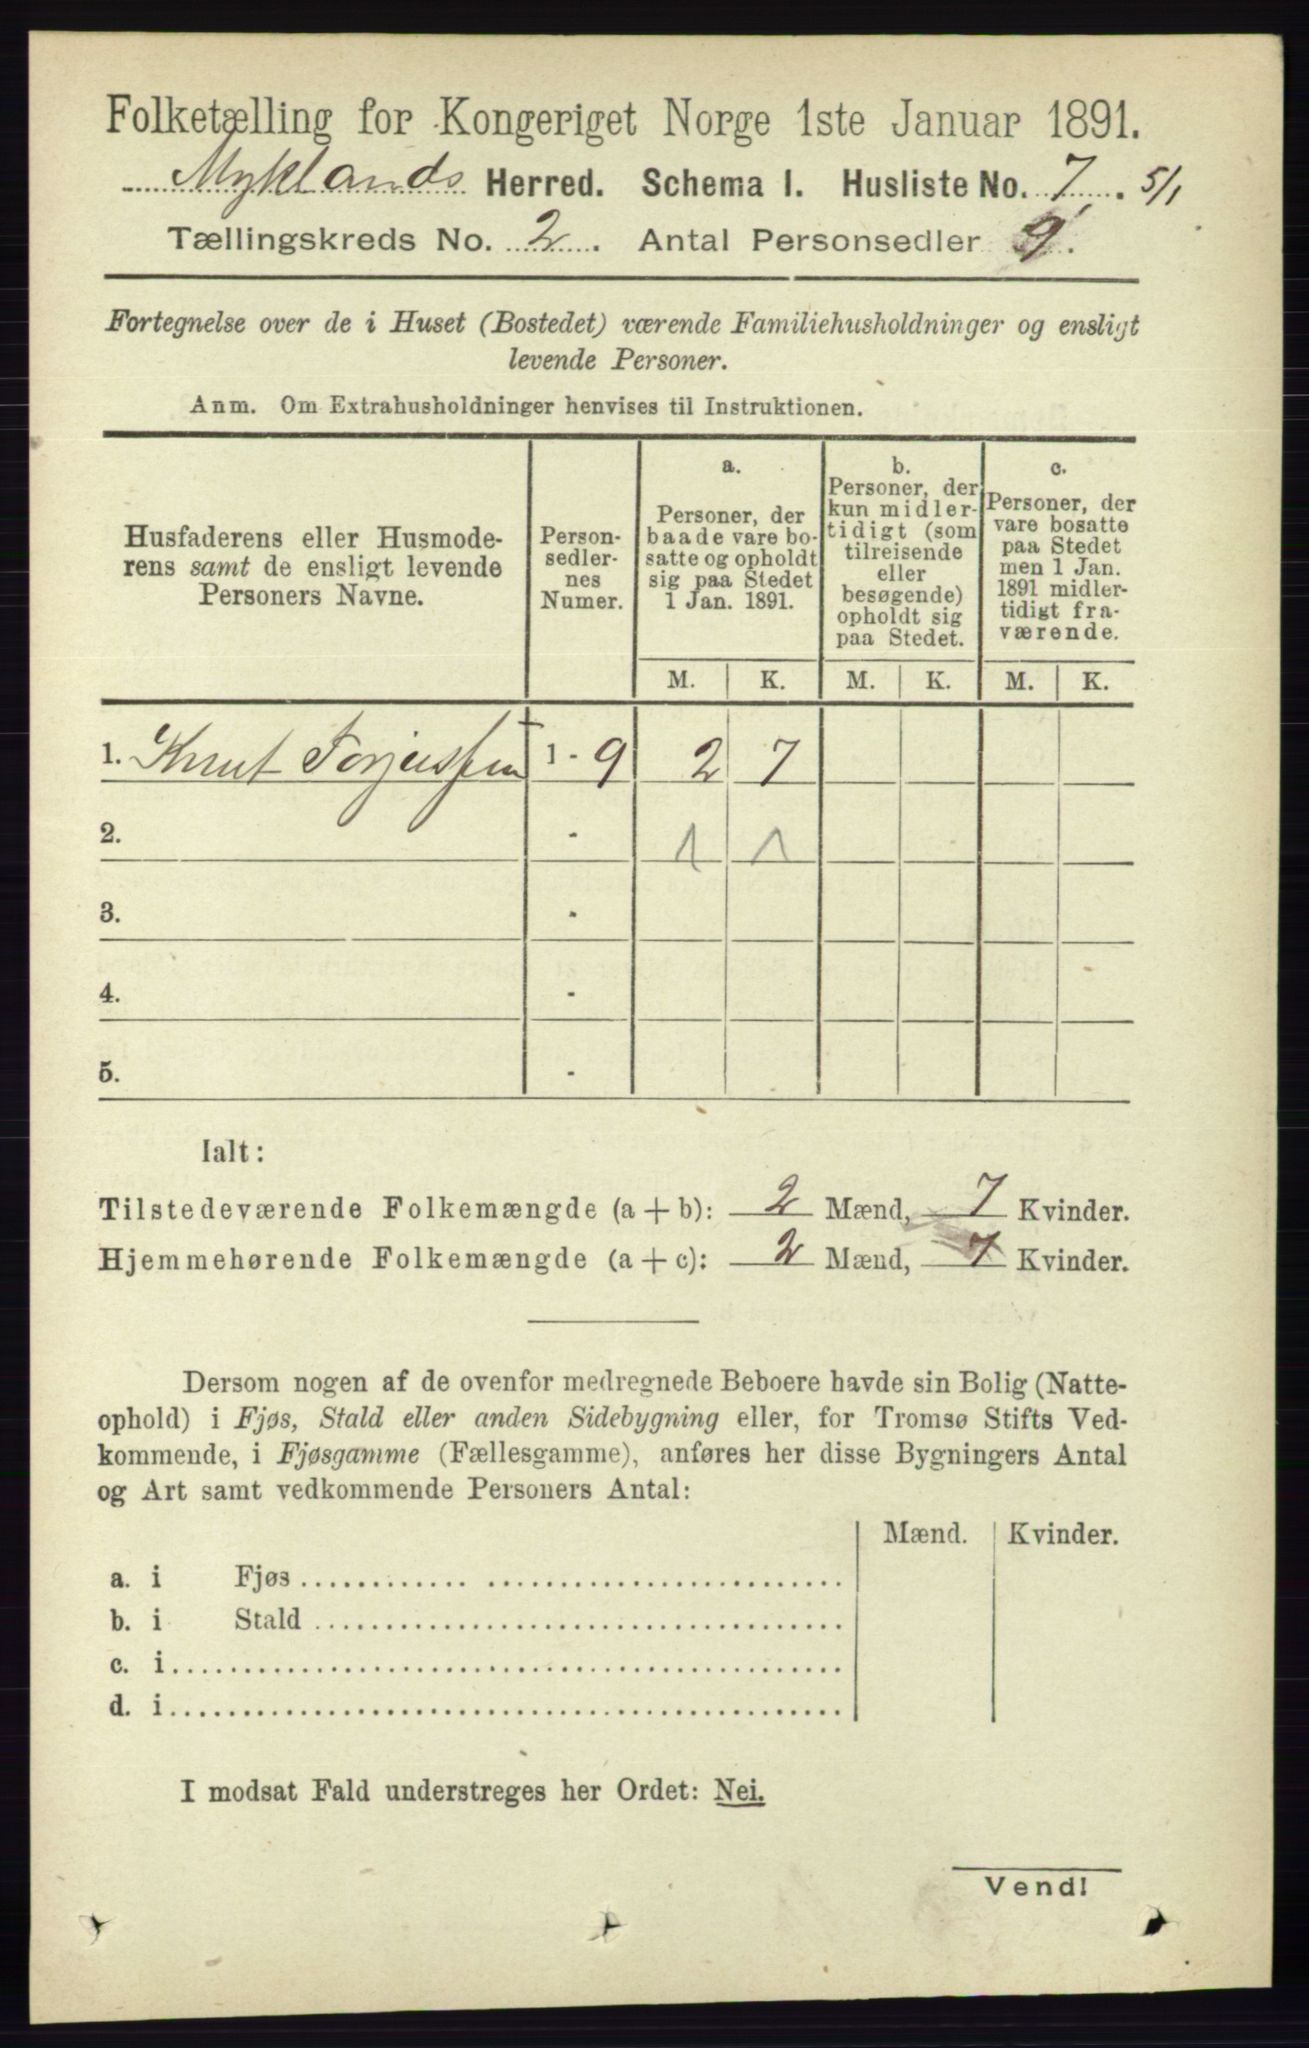 Folketælling for Kongeriget Norge 1ste Januar 1891.
Myklands Herred. Schema I. Husliste No. 7. 5/1
Tællingskreds No. 2. Antal Personsedler 9.
Fortegnelse over de i Huset (Bostedet) værende Familiehusholdninger og ensligt
levende Personer.
Anm. Om Extrahusholdninger henvises til Instruktionen.
Husfaderens eller Husmode-
rens samt de ensligt levende
Personers Navne.
Person-
sedler-
nes
Numer.
a.
Personer, der
baade vare bo-
satte og opholdt
sig paa Stedet
1 Jan. 1891.
b.
Personer, der
kun midler-
tidigt (som
tilreisende
eller
besøgende)
opholdt sig
paa Stedet.
c.
Personer, der
vare bosatte
paa Stedet
men 1 Jan.
1891 midler-
tidigt fra-
værende.
M. K. M. K. M. K.
1. Knut Torjussen 1 - 9 2 7
2. - 1 1
3. -
4. -
5. -
Ialt:
Tilstedeværende Folkemængde (a + b): 2 Mænd, 7 Kvinder.
Hjemmehørende Folkemængde (a + c): 2 Mænd, 7 Kvinder.
Dersom nogen af de ovenfor medregnede Beboere havde sin Bolig (Natte-
ophold) i Fjøs, Stald eller anden Sidebygning eller, for Tromsø Stifts Ved-
kommende, i Fjøsgamme (Fællesgamme), anføres her disse Bygningers Antal
og Art samt vedkommende Personers Antal:
Mænd. Kvinder.
a. i Fjøs
b. i Stald
c. i
d. i
I modsat Fald understreges her Ordet: Nei.
Vend!